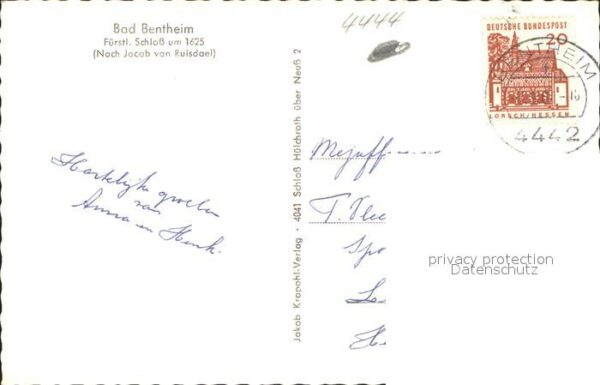 4444
Bad Bentheim
Fürstl. Schloß um 1625
(Nach Jacob van Ruisdael)
Hartelijke groeten
van
Anna en Henk.
Jakob Krapohl-Verlag · 4041 Schloß Hülchrath über Neuß 2
DEUTSCHE BUNDESPOST
20
LORSCH/HESSEN
BENTHEIM
4442
Mejuff
T. Vlee
Spo
privacy protection
Datenschutz